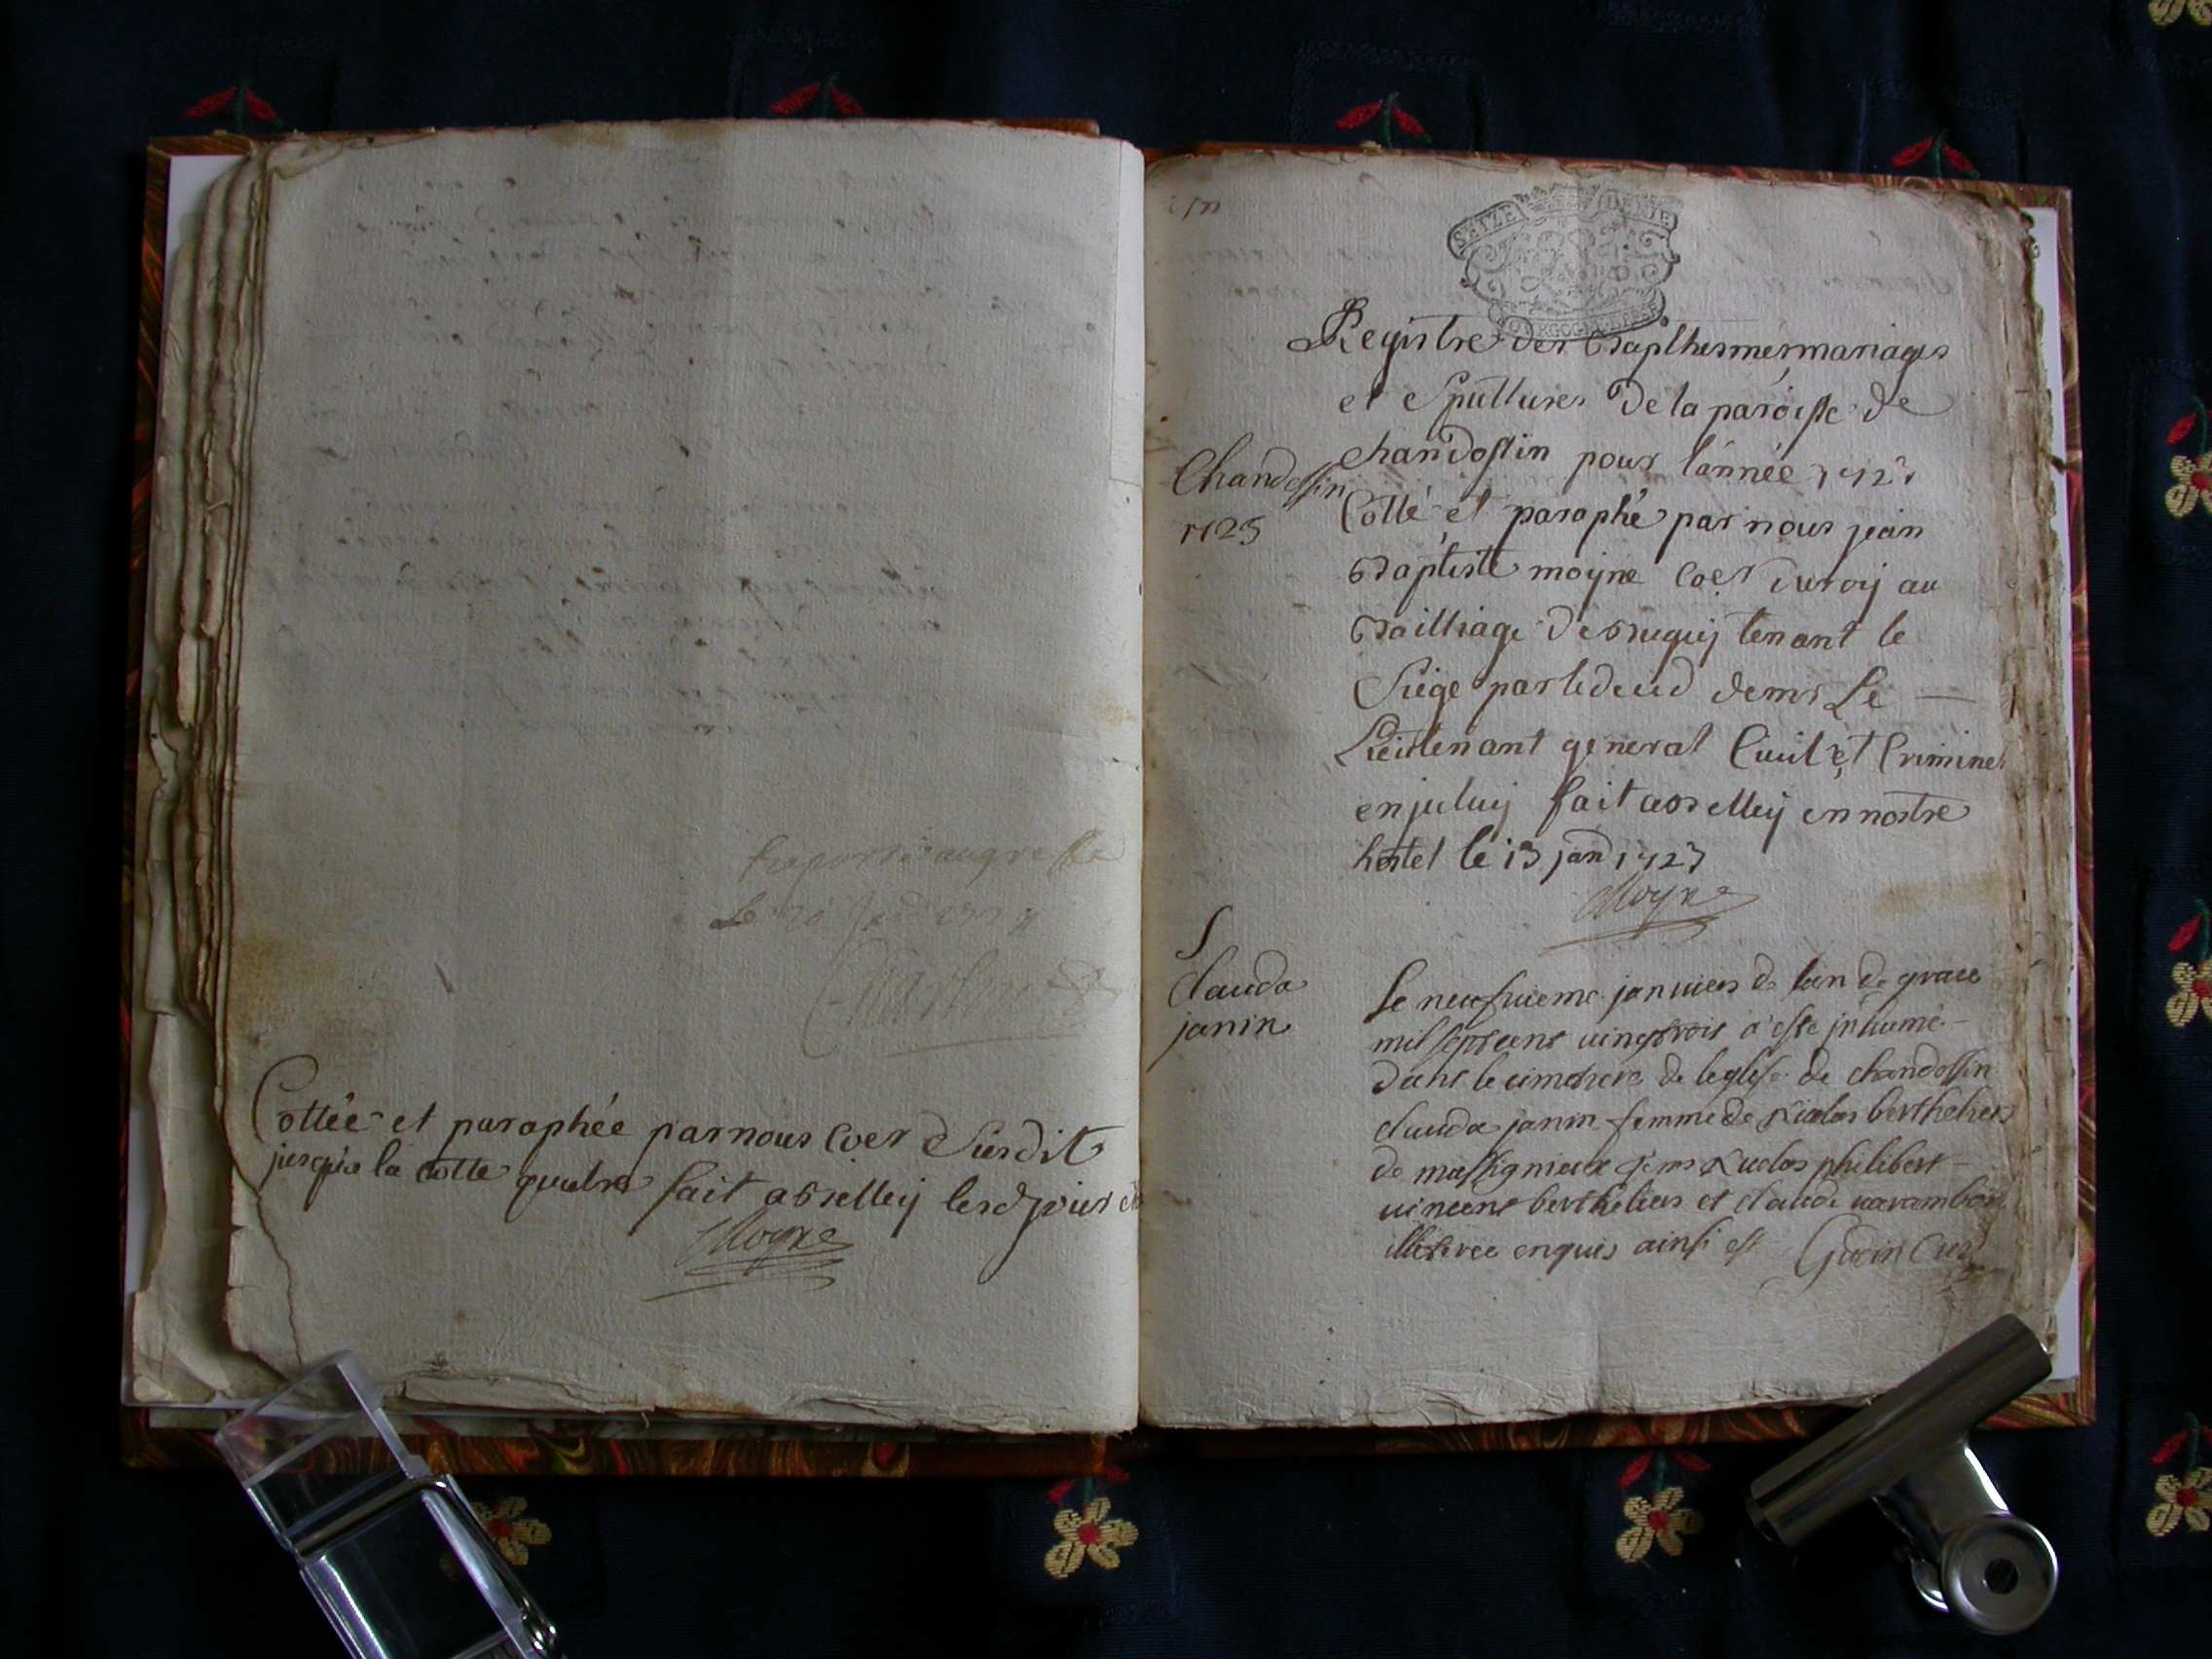 raporté au greffe
Le 20 Jan
Cottée et paraphée par nous Coer Susdit
jusqu'a la cotte quatre fait a Belley lesd jour et
Moyne
SEIZE DENIE
Registre des Bapthesmes, mariages
et Spultures de la paroisse de
Chandossin pour l'année 1723
Chandossin
1723
Cotté et paraphé par nous jean
Baptiste moyne Coer du roy au
Bailliage de Bugey tenant le
Siege par le deced de mr Le
Lieutenant general Civil et Criminel
en jceluy fait a Belley en nostre
hostel le 13 janr 1723
Moyne
S
Clauda
janin
Le neufvieme janvier de lan de grace
mil sept cent vingt trois a esté jnhumé
dans le cimetiere de leglise de chandossin
clauda janin femme de Nicolas berthelier
de massignieux pnts Nicolas philibert
vincent berthelier et claude varambon
illiteree enquis ainsi est Godin Curé